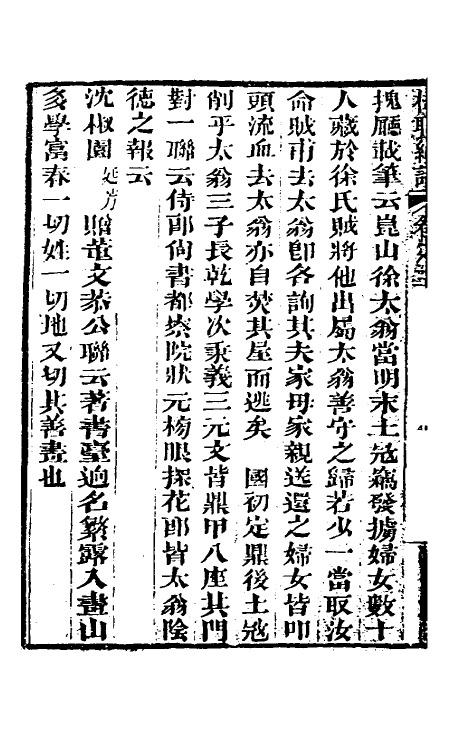 槐廳載筆云崑山徐太翁當明末土寇竊發擄婦女數十
人藏於徐氏賊將他出屬太翁善守之歸若少一當取汝
命賊甫去太翁卽各詢其夫家母家親送還之婦女皆叩
頭流血去太翁亦自焚其屋而逃矣　國初定鼎後土寇
削平太翁三子長乾學次秉義三元文皆鼎甲八座其門
對一聯云侍郎尙書都察院狀元榜眼探花郎皆太翁陰
德之報云
沈椒園廷芳贈董文恭公聯云著書臺迥名繁露入畫山
多學富春一切姓一切地又切其善畫也